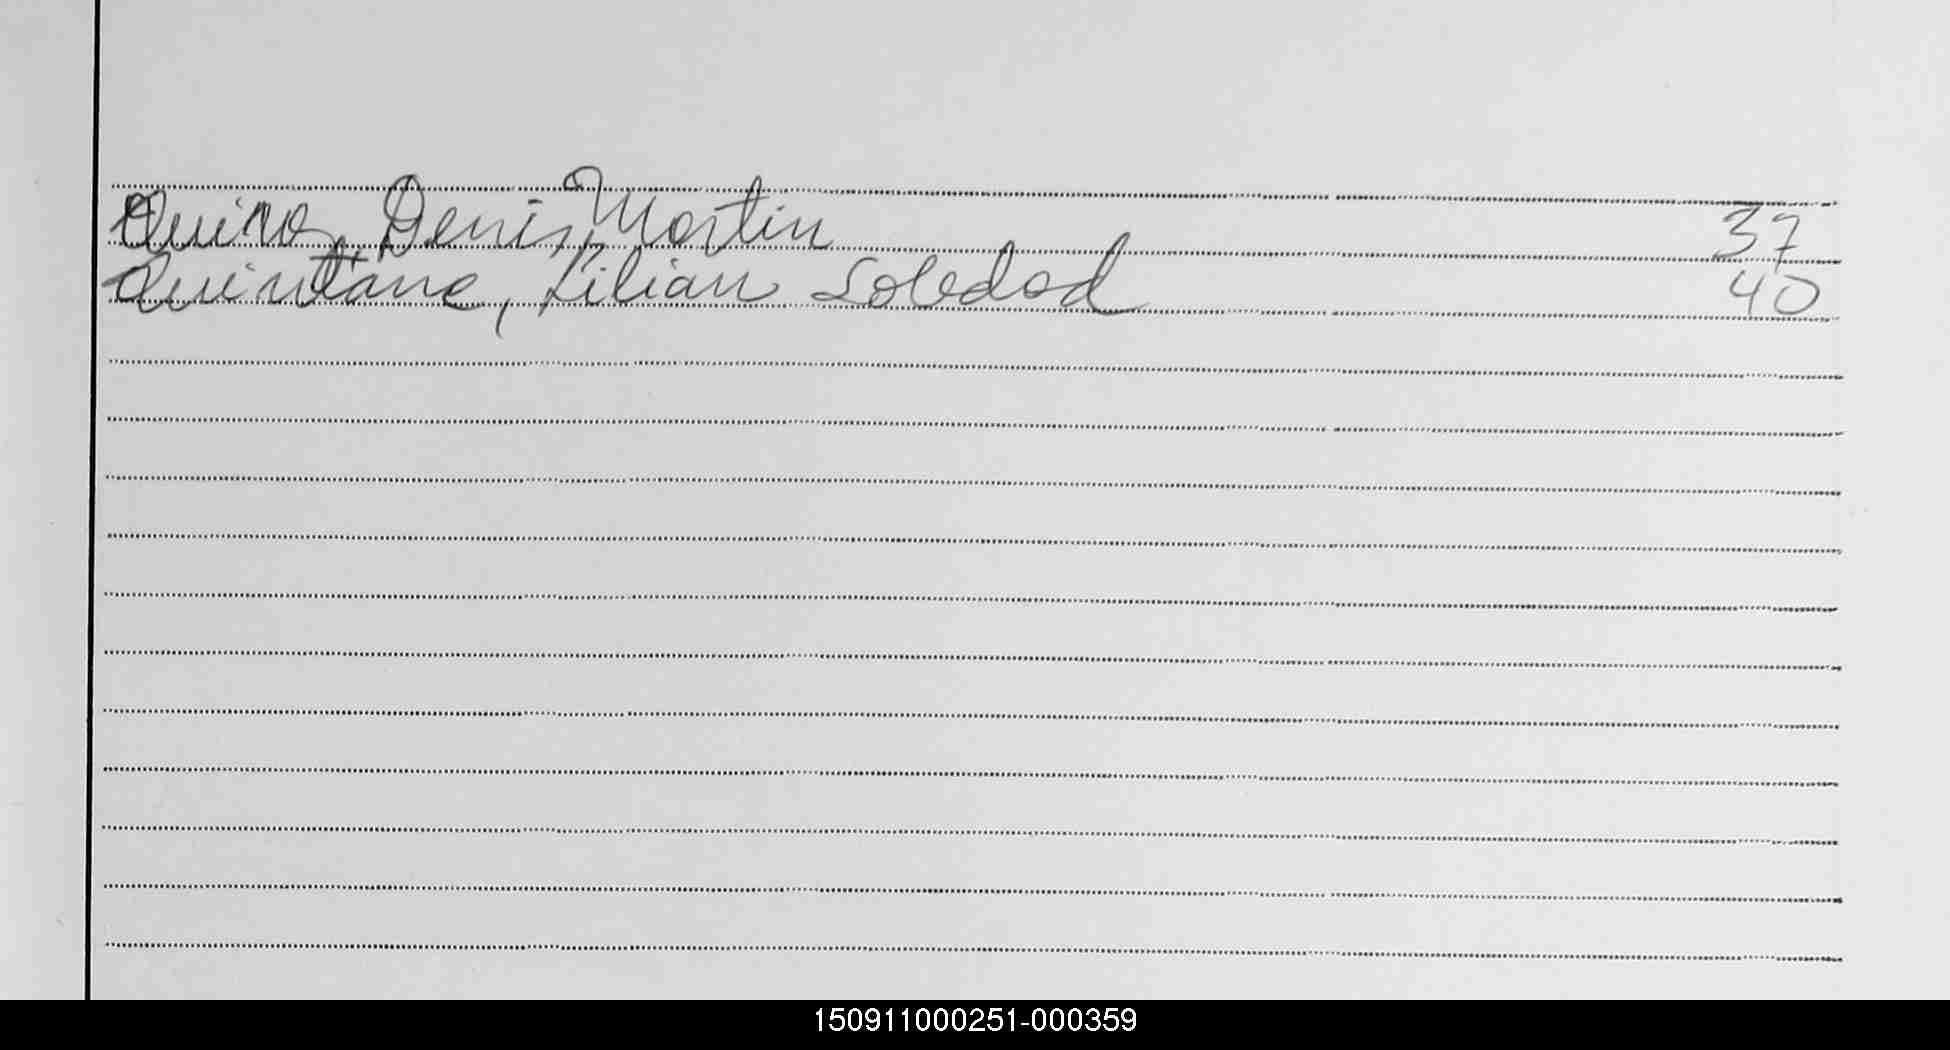 Quiroz, Denis Martin 37
Quintana, Lilian Soledad 40
150911000251-000359